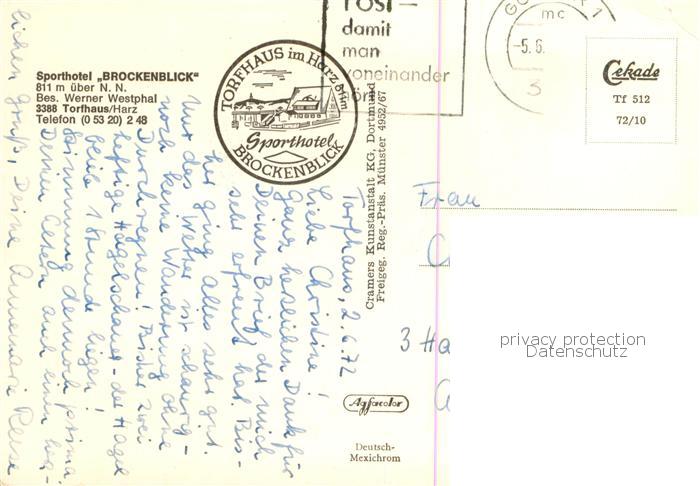 Sporthotel „BROCKENBLICK“
811 m über N. N.
Bes. Werner Westphal
3388 Torfhaus/Harz
Telefon (0 53 20) 2 48
TORFHAUS im Harz 811m
Sporthotel
BROCKENBLICK
damit
man
voneinander
-5.6.
mc
3
Cekade
Tf 512
72/10
Torfhaus, 2.6.72
Liebe Christine!
Ganz herzlichen Dank für
Deinen Brief, der mich
sehr erfreut hat. Bis-
her ging alles sehr gut.
Nur das Wetter ist schaurig -
noch keine Wanderung ohne
Durchregnen! Bisher zwei
heftige Hagelschauer - der Hagel
blieb 1 Stunde liegen!
Stimmung dennoch prima.
Deinen Eltern auch einen herz-
lichen Gruß, Deine Annemarie
Cramers Kunstanstalt KG, Dortmund
Freigeg. Reg.-Präs. Münster 4952/67
Frau
3 Ha
Agfacolor
Deutsch-
Mexichrom
privacy protection
Datenschutz